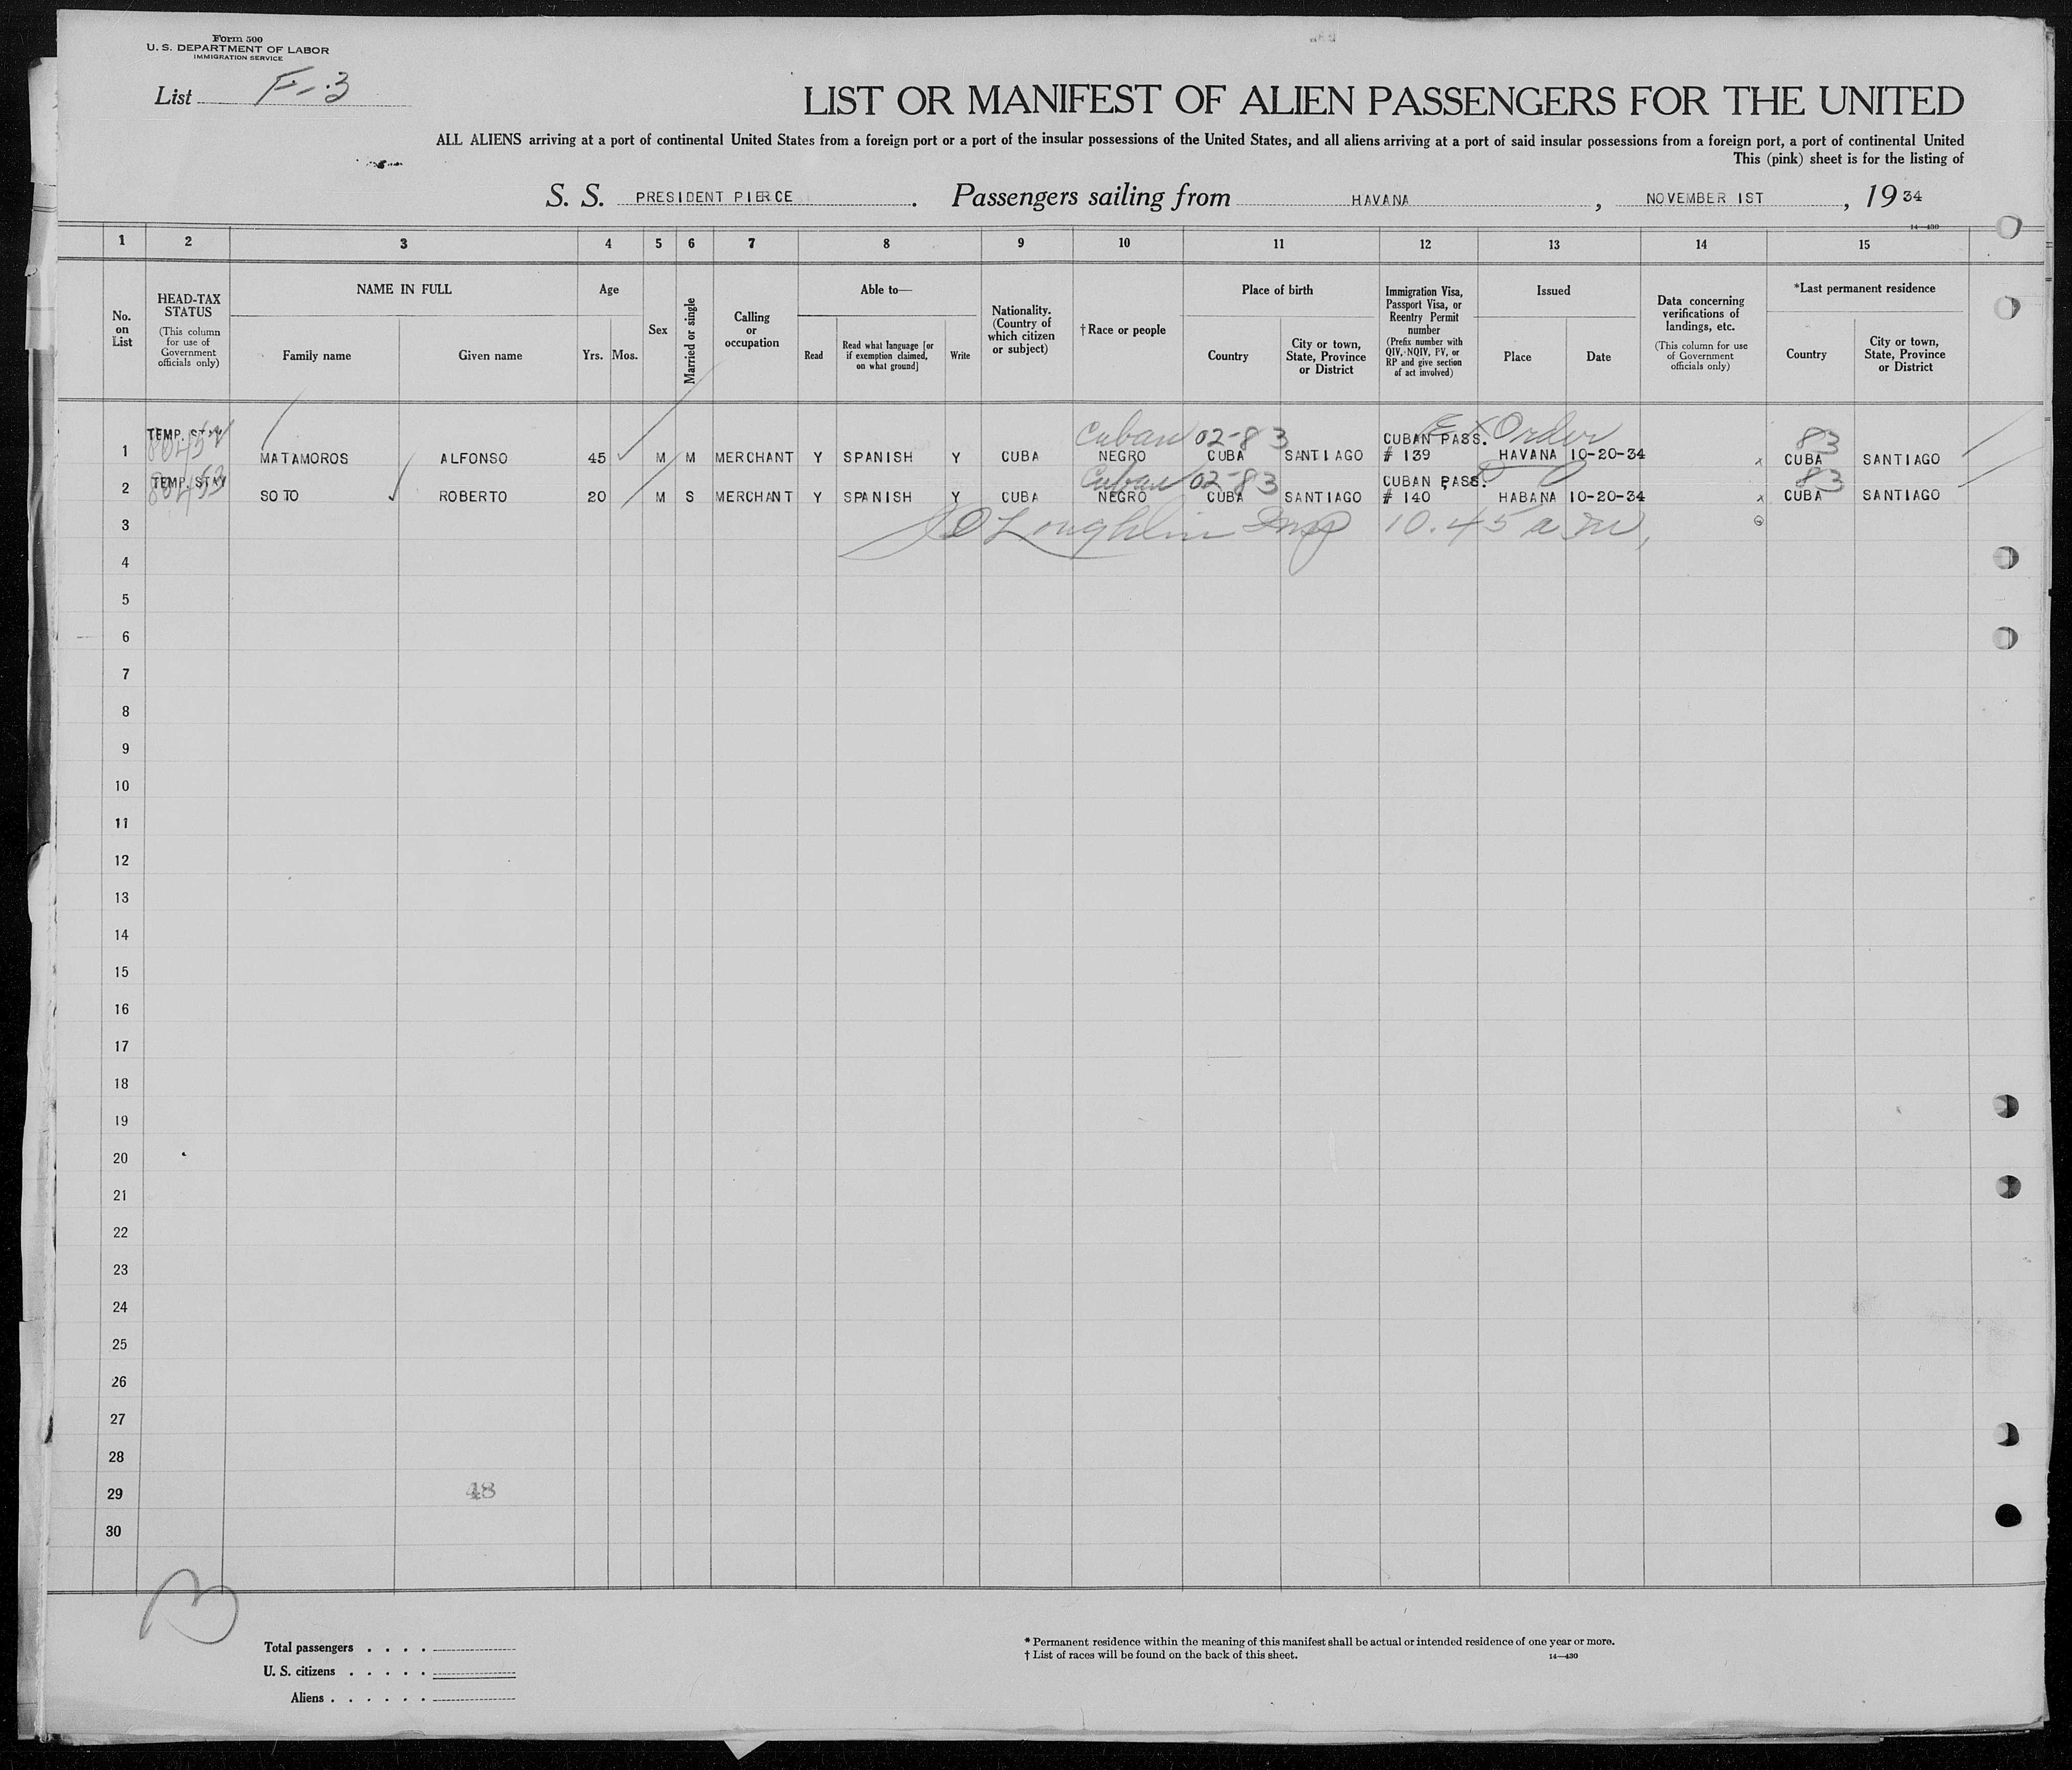 Form 500
U. S. DEPARTMENT OF LABOR
IMMIGRATION SERVICE
List F-3
LIST OR MANIFEST OF ALIEN PASSENGERS FOR THE UNITED
ALL ALIENS arriving at a port of continental United States from a foreign port or a port of the insular possessions of the United States, and all aliens arriving at a port of said insular possessions from a foreign port, a port of continental United
This (pink) sheet is for the listing of
S. S. PRESIDENT PIERCE. Passengers sailing from HAVANA, NOVEMBER 1ST, 1934
14—430
1 2 3 4 5 6 7 8 9 10 11 12 13 14 15
No. on List
HEAD-TAX STATUS
(This column for use of Government officials only)
NAME IN FULL
Family name
Given name
Age
Yrs. Mos.
Sex
Married or single
Calling or occupation
Able to—
Read
Read what language [or if exemption claimed, on what ground]
Write
Nationality. (Country of which citizen or subject)
†Race or people
Place of birth
Country
City or town, State, Province or District
Immigration Visa, Passport Visa, or Reentry Permit number
(Prefix number with QIV, NQIV, PV, or RP and give section of act involved)
Issued
Place
Date
Data concerning verifications of landings, etc.
(This column for use of Government officials only)
*Last permanent residence
Country
City or town, State, Province or District
TEMP. STAY Cuban 02-83 CUBAN PASS. Ex Order 83
1 MATAMOROS ALFONSO 45 M M MERCHANT Y SPANISH Y CUBA NEGRO CUBA SANTIAGO # 139 HAVANA 10-20-34 x CUBA SANTIAGO
TEMP. STAY Cuban 02-83 CUBAN PASS. 83
2 SOTO ROBERTO 20 M S MERCHANT Y SPANISH Y CUBA NEGRO CUBA SANTIAGO # 140 HABANA 10-20-34 x CUBA SANTIAGO
3 O'Loughlin Insp 10.45 a m,
4
5
6
7
8
9
10
11
12
13
14
15
16
17
18
19
20
21
22
23
24
25
26
27
28
29 48
30
Total passengers . . . .
U. S. citizens . . . . .
Aliens . . . . . .
* Permanent residence within the meaning of this manifest shall be actual or intended residence of one year or more.
† List of races will be found on the back of this sheet. 14—430